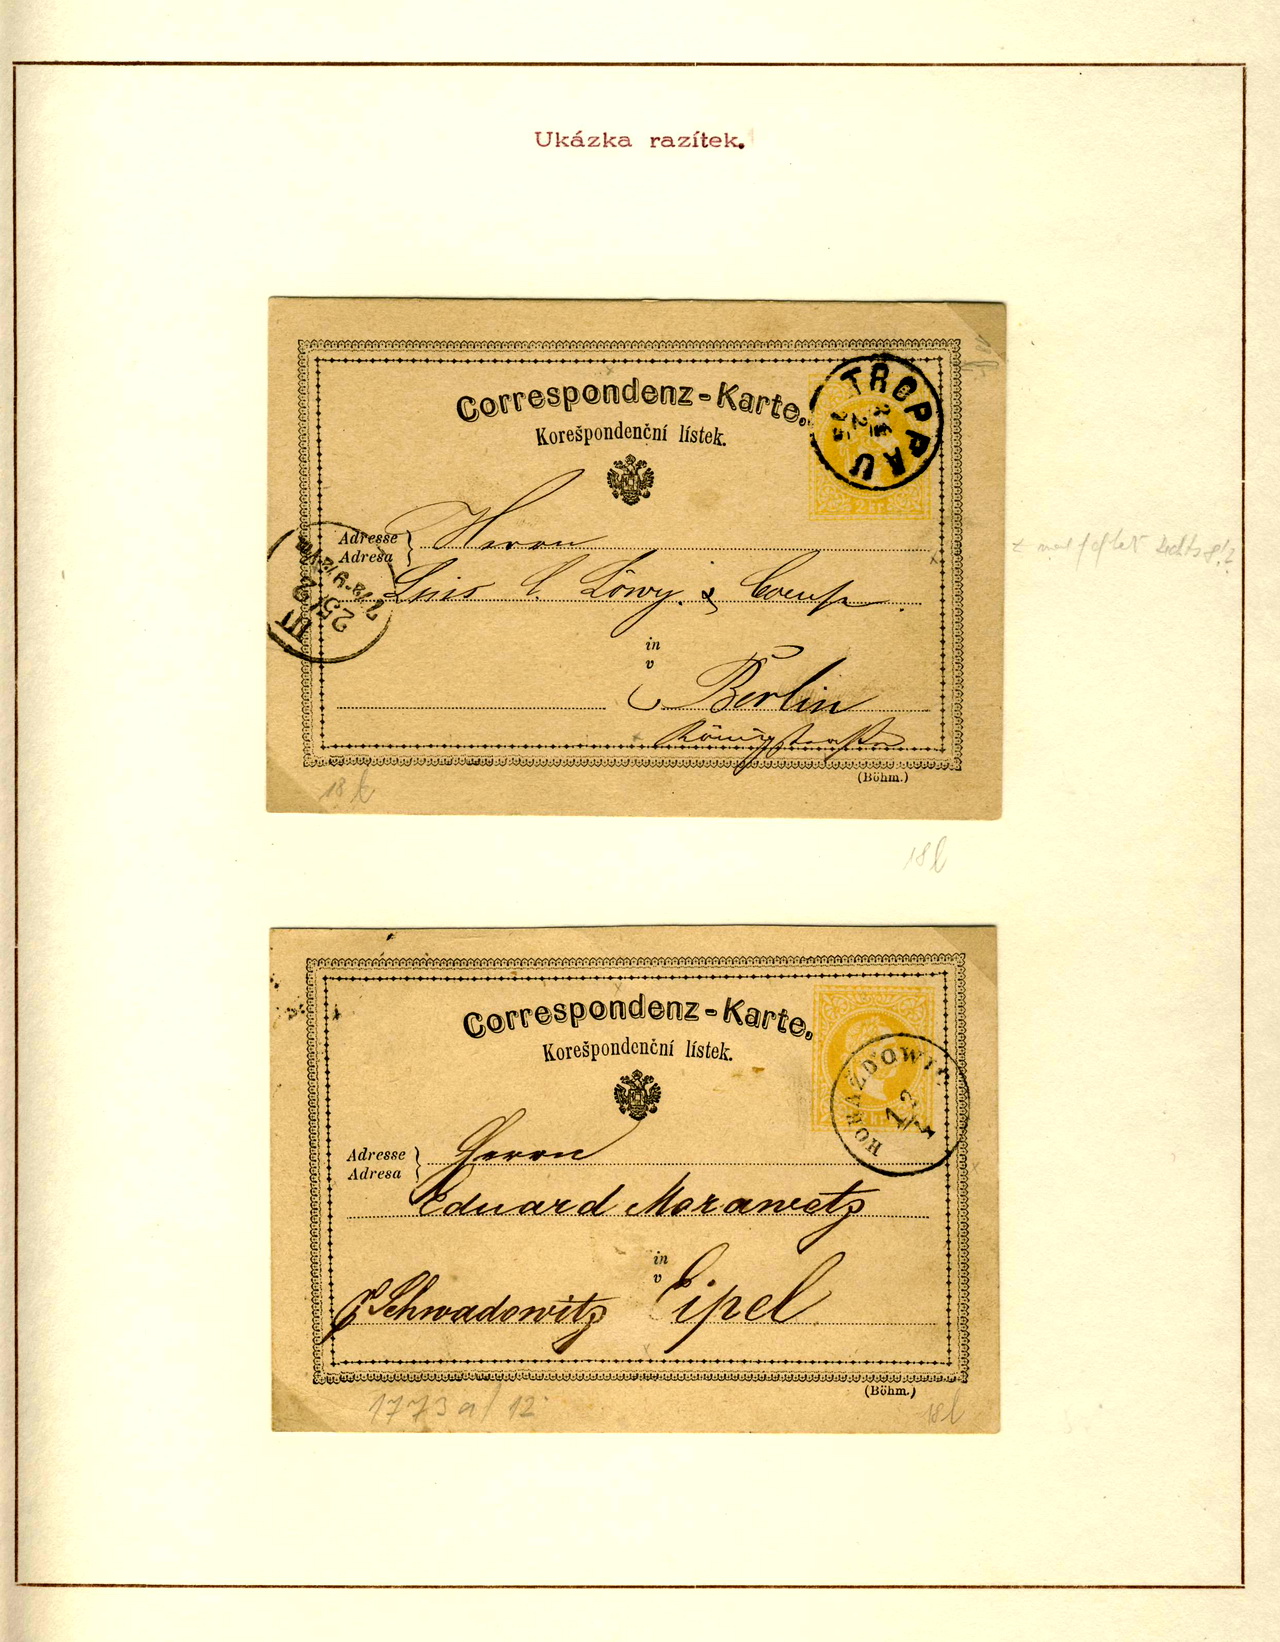 Ukázka razítek.
Correspondenz-Karte.
Korešpondenční lístek.
TROPPAU
2 kr
Adresse
Adresa
Herrn
Luis C. Löwy & Comp.
in
v
Berlin
Königstraße
III
25/2
(Böhm.)
18 k
18 l
Correspondenz-Karte.
Korešpondenční lístek.
HORAŽDOWIC
12/1
Adresse
Adresa
Herrn
Eduard Morawetz
in
v
Eipel
Schwadowitz
(Böhm.)
1773 a/ 12
18 l